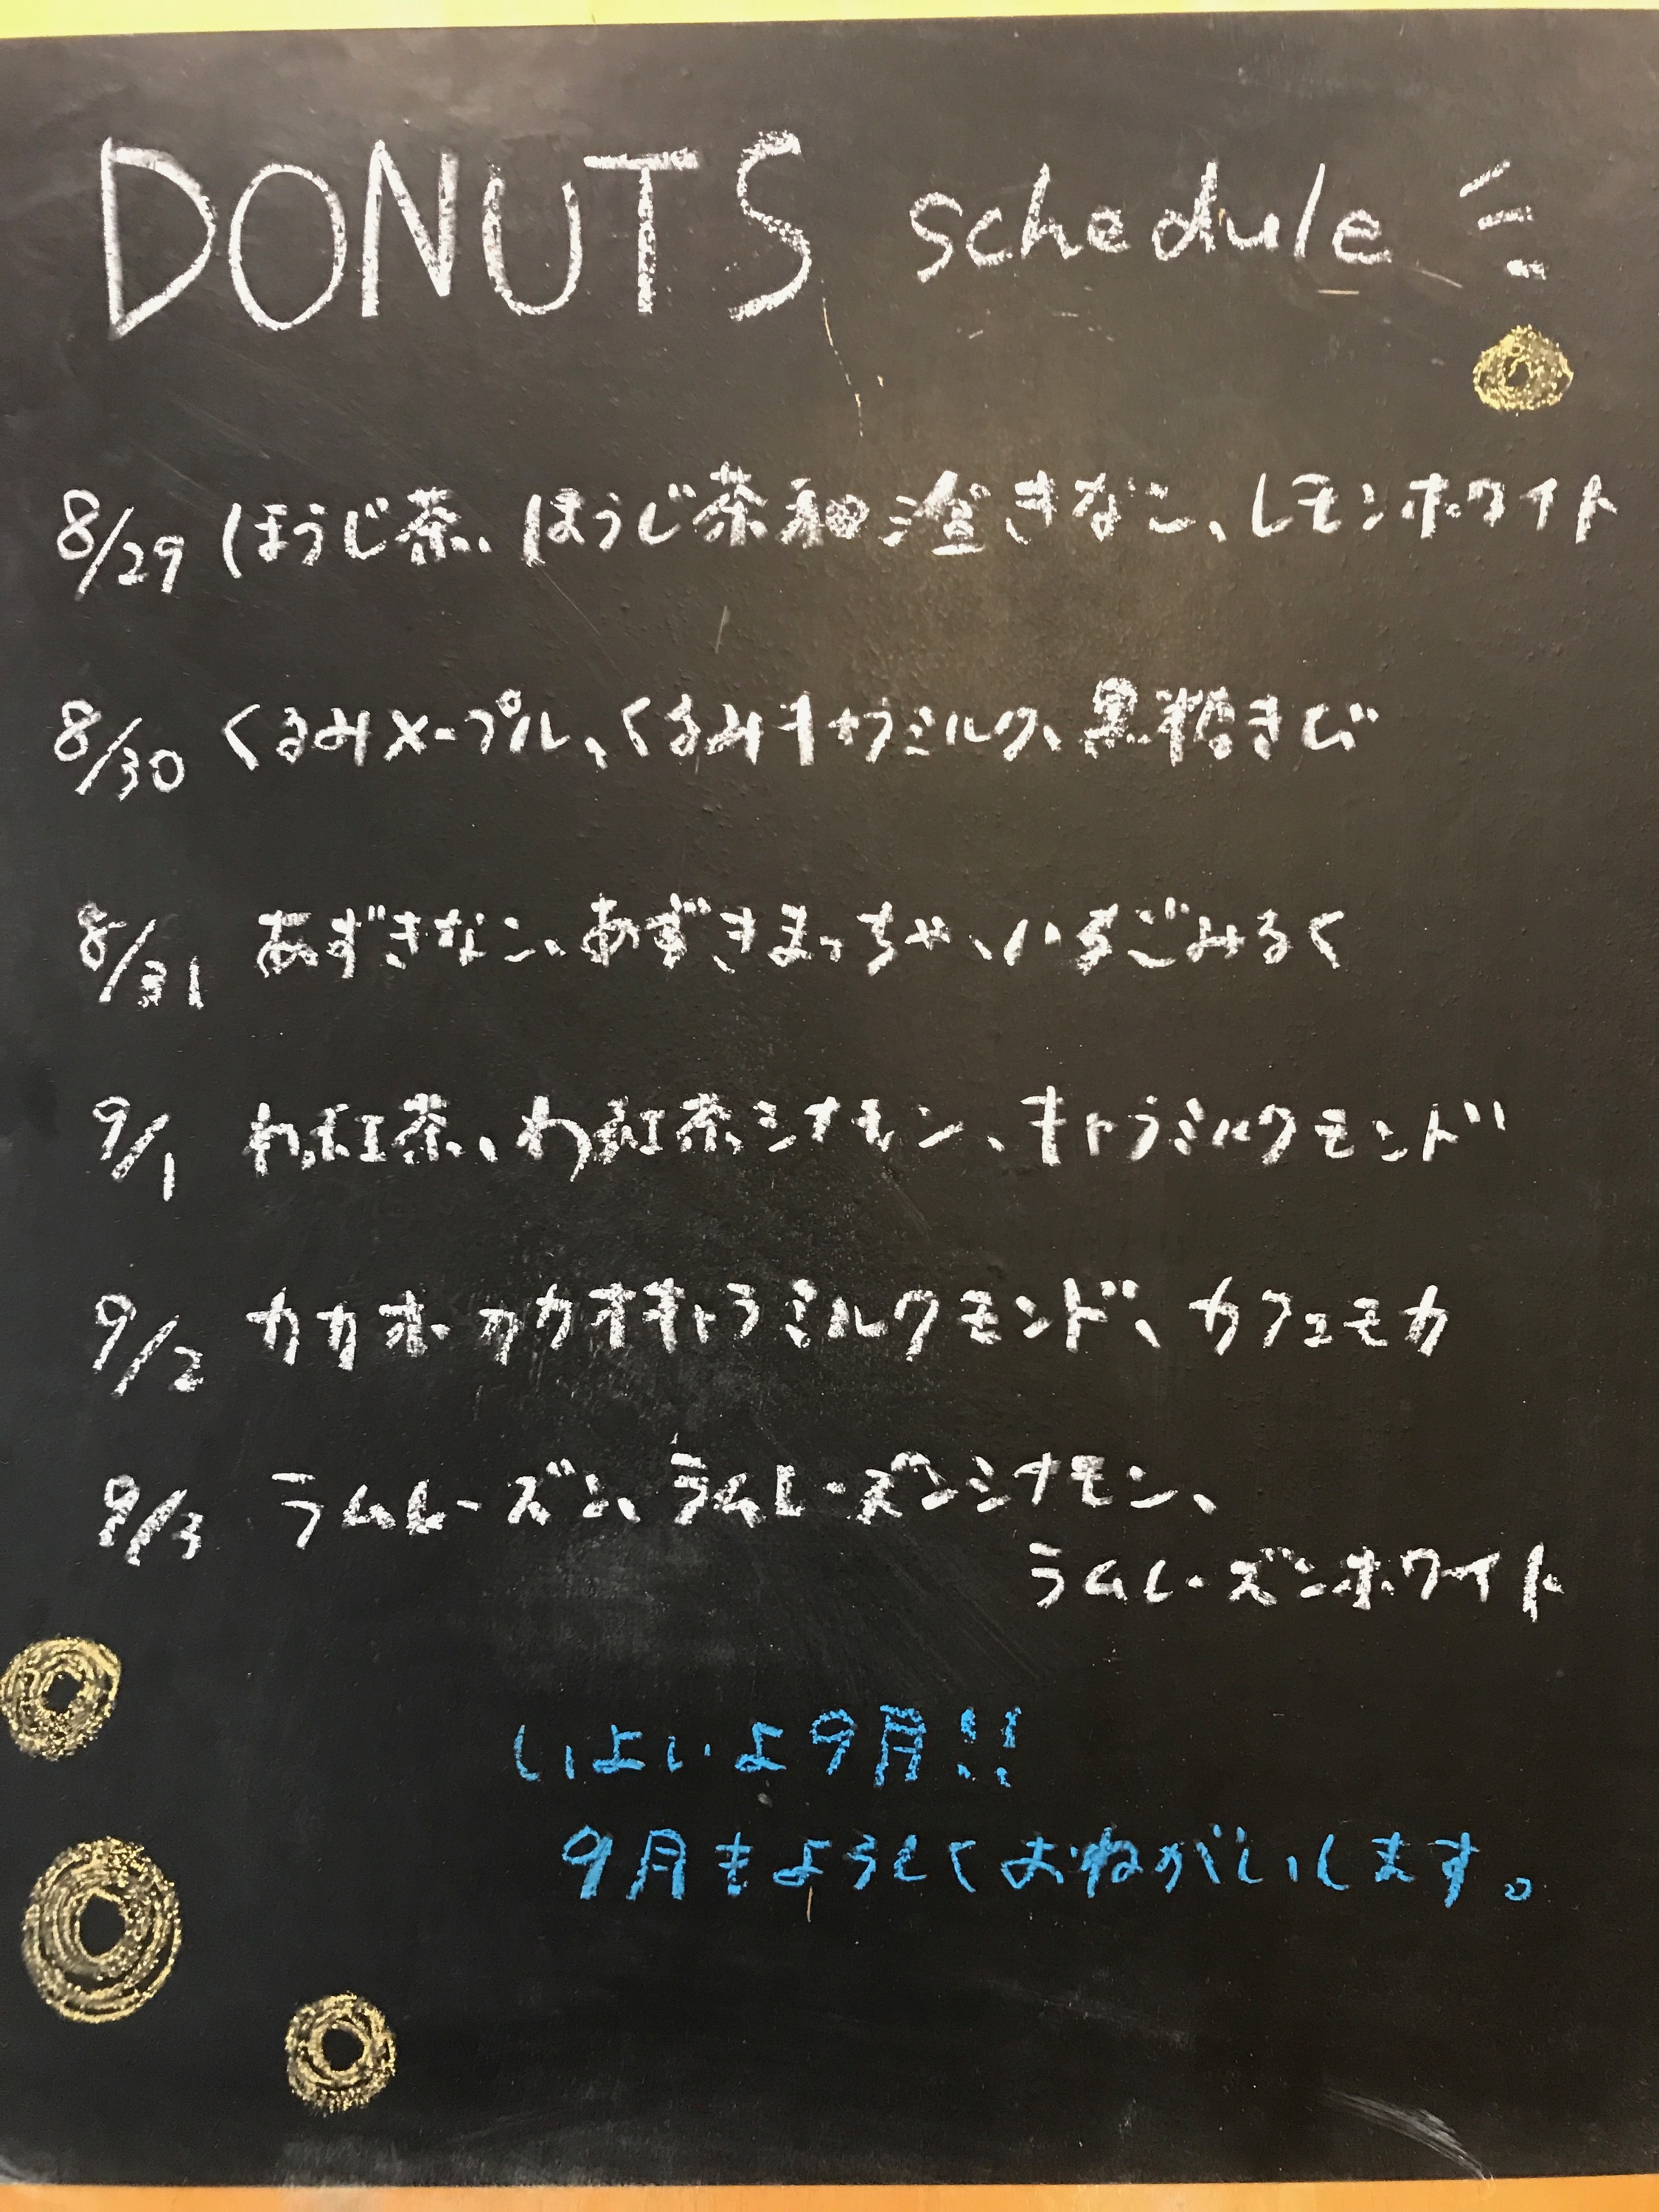 DONUTS schedule
8/29 ほうじ茶、ほうじ茶和三盆きなこ、レモンホワイト
8/30 くるみメープル、くるみキャラミルク、黒糖きび
8/31 あずきなこ、あずきまっちゃ、いちごみるく
9/1 わ紅茶、わ紅茶シナモン、キャラミルクモンド
9/2 カカオ、カカオキャラミルクモンド、カフェモカ
9/3 ラムレーズン、ラムレーズンシナモン、
ラムレーズンホワイト
いよいよ9月!!
9月もよろしくおねがいします。